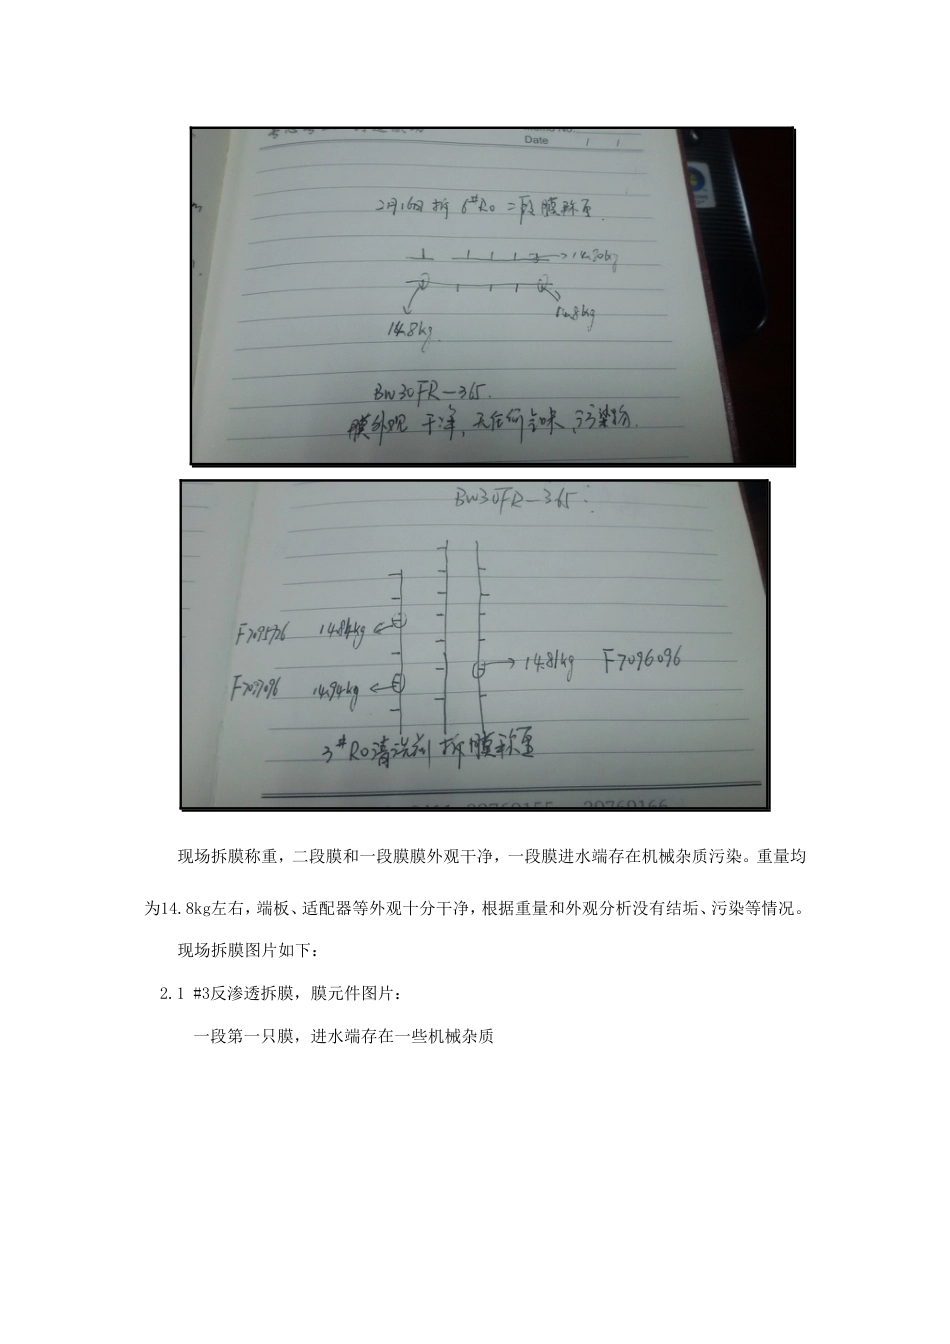 Date / /
2月16日拆 6#Ro 二段膜称重.
14.30kg
14.8kg
14.8kg
BW30FR-365.
膜外观 干净, 无任何气味, 污染物.
BW30FR-365:
F7095726 14.84kg
14.81kg F7096096
14.94kg
3#Ro清洗前 拆膜称重
现场拆膜称重，二段膜和一段膜膜外观干净，一段膜进水端存在机械杂质污染。重量均
为14.8kg左右，端板、适配器等外观十分干净，根据重量和外观分析没有结垢、污染等情况。
现场拆膜图片如下：
2.1 #3反渗透拆膜，膜元件图片：
一段第一只膜，进水端存在一些机械杂质